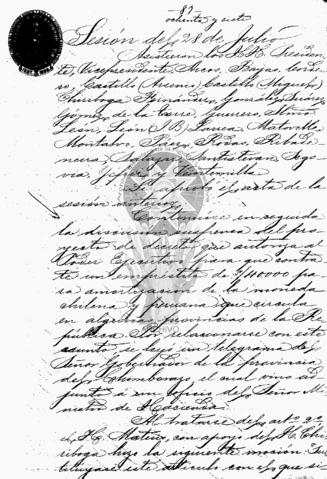 87
ochenta y siete
Sesión del 28 de Julio
Asistieron los H.H. Presiden-
te, Vicepresidente, Arcos, Borjas,
Castillo Castillo (Miguel)
Chiriboga Fernández, González Suárez
Gómez de la Torre, Guerrero,
León, León (J. B.) Larrea, Matovelle
Montalvo, Páez, Rodas, Ribade-
neira Salazar, Santistevan, Sego-
via, y
Se aprobó el acta de la
sesión anterior.
Continuóse en seguida
la discusión suspensa del pro-
yecto de decreto que autoriza al
Poder Ejecutivo para que contra-
te un empréstito de $/40000 pa-
ra amortización de la moneda
chilena y peruana que circula
en algunas provincias de la Re-
pública. Por relacionarse con este
asunto se leyó un telegrama del
Señor Gobernador de la provincia
del Chimborazo, el cual vino ad-
junto á un oficio del Señor Mi-
nistro de Hacienda.
Al tratarse del arto 2o
el H. Mateus, con apoyo del H. Chi-
riboga hizo la siguiente moción: "Sus-
tituyase este artículo con el que si-
ARCHIVO